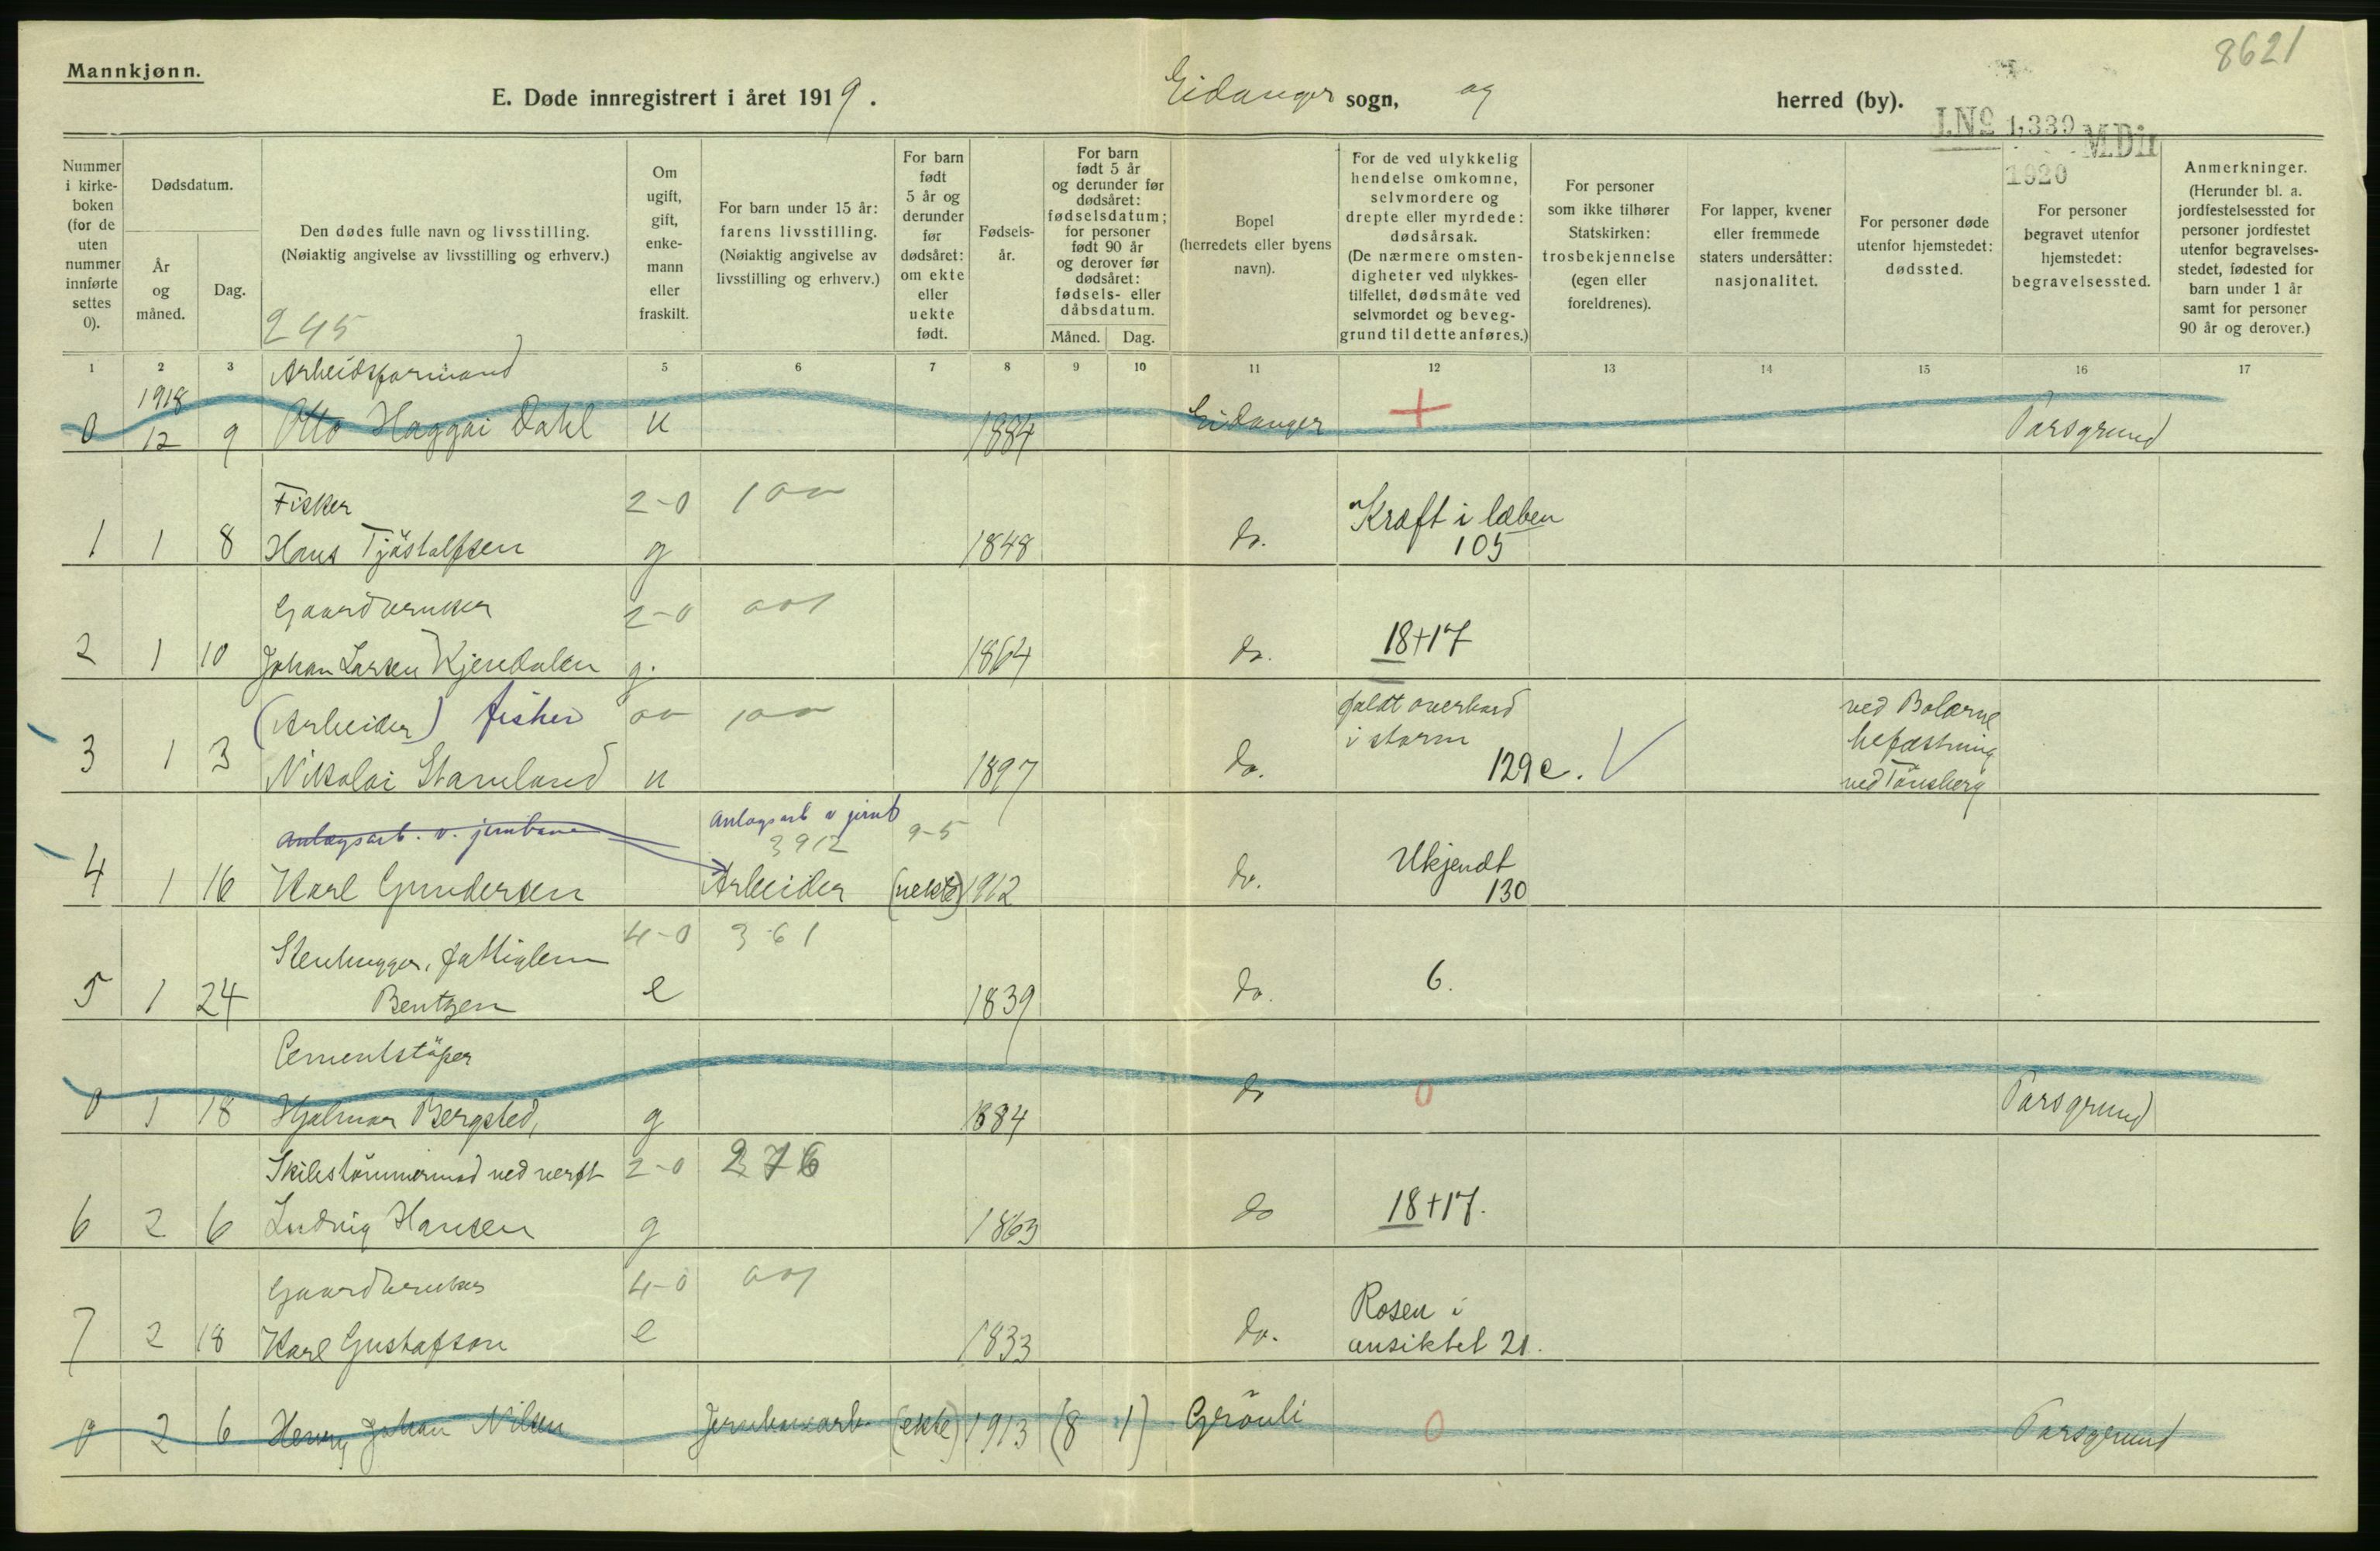 8621
Mannkjønn.
E. Døde innregistrert i året 1919. Eidanger sogn, og herred (by).
J.No 1,339 M.Dir
1920
Nummer i kirkeboken (for de uten nummer innførte settes 0).
Dødsdatum.
År og måned.
Dag.
Den dødes fulle navn og livsstilling.
(Nøiaktig angivelse av livsstilling og erhverv.)
245
Om ugift, gift, enkemann eller fraskilt.
For barn under 15 år: farens livsstilling.
(Nøiaktig angivelse av livsstilling og erhverv.)
For barn født 5 år og derunder før dødsåret: om ekte eller uekte født.
Fødselsår.
For barn født 5 år og derunder før dødsåret: fødselsdatum; for personer født 90 år og derover før dødsåret: fødsels- eller dåbsdatum.
Måned. Dag.
Bopel (herredets eller byens navn).
For de ved ulykkelig hendelse omkomne, selvmordere og drepte eller myrdede: dødsårsak.
(De nærmere omstendigheter ved ulykkestilfellet, dødsmåte ved selvmordet og beveggrund til dette anføres.)
For personer som ikke tilhører Statskirken: trosbekjennelse (egen eller foreldrenes).
For lapper, kvener eller fremmede staters undersåtter: nasjonalitet.
For personer døde utenfor hjemstedet: dødssted.
For personer begravet utenfor hjemstedet: begravelsessted.
Anmerkninger.
(Herunder bl. a. jordfestelsessted for personer jordfestet utenfor begravelsesstedet, fødested for barn under 1 år samt for personer 90 år og derover.)
1 2 3 5 6 7 8 9 10 11 12 13 14 15 16 17
1918 Arbeidsformand
0 12 9 Otto Haggai Dahl u 1884 Eidanger + Porsgrund
Fisker 2-0 100 Kræft i læben
1 1 8 Hans Tjöstolfsen g 1848 do. 105
Gaardbruker 2-0 001 18+17
2 1 10 Johan Larsen Kjendalen g. 1864 do.
(Arbeider) fisker 00 100 faldt overbord i storm ved Bolærne befæstning
3 1 3 Nikolai Stamland u 1897 do. 129e. V ved Tönsberg
Anlægsarb. v. jernbane Anlagsarb v jernb 3912 9-5 Ukjendt
4 1 16 Karl Gundersen Arbeider (uekte) 1912 do. 130
Stenhugger, fattiglem 4-0 361 6.
5 1 24 Bentzen e 1839 do.
Cementstöper
0 1 18 Hjalmar Bergsted, g 1884 do 0 Porsgrund
Skibstömmermand ved verft 2-0 276 18+17.
6 2 6 Ludvig Hansen g 1863 do
Gaardbruker 4-0 001 Rosen i
7 2 18 Karl Gustafson e 1833 do. ansiktet 21.
0 2 6 Henry Johan Nilsen Jernbanearb. (ekte) 1913 (8 1) Grönli 0 Porsgrund